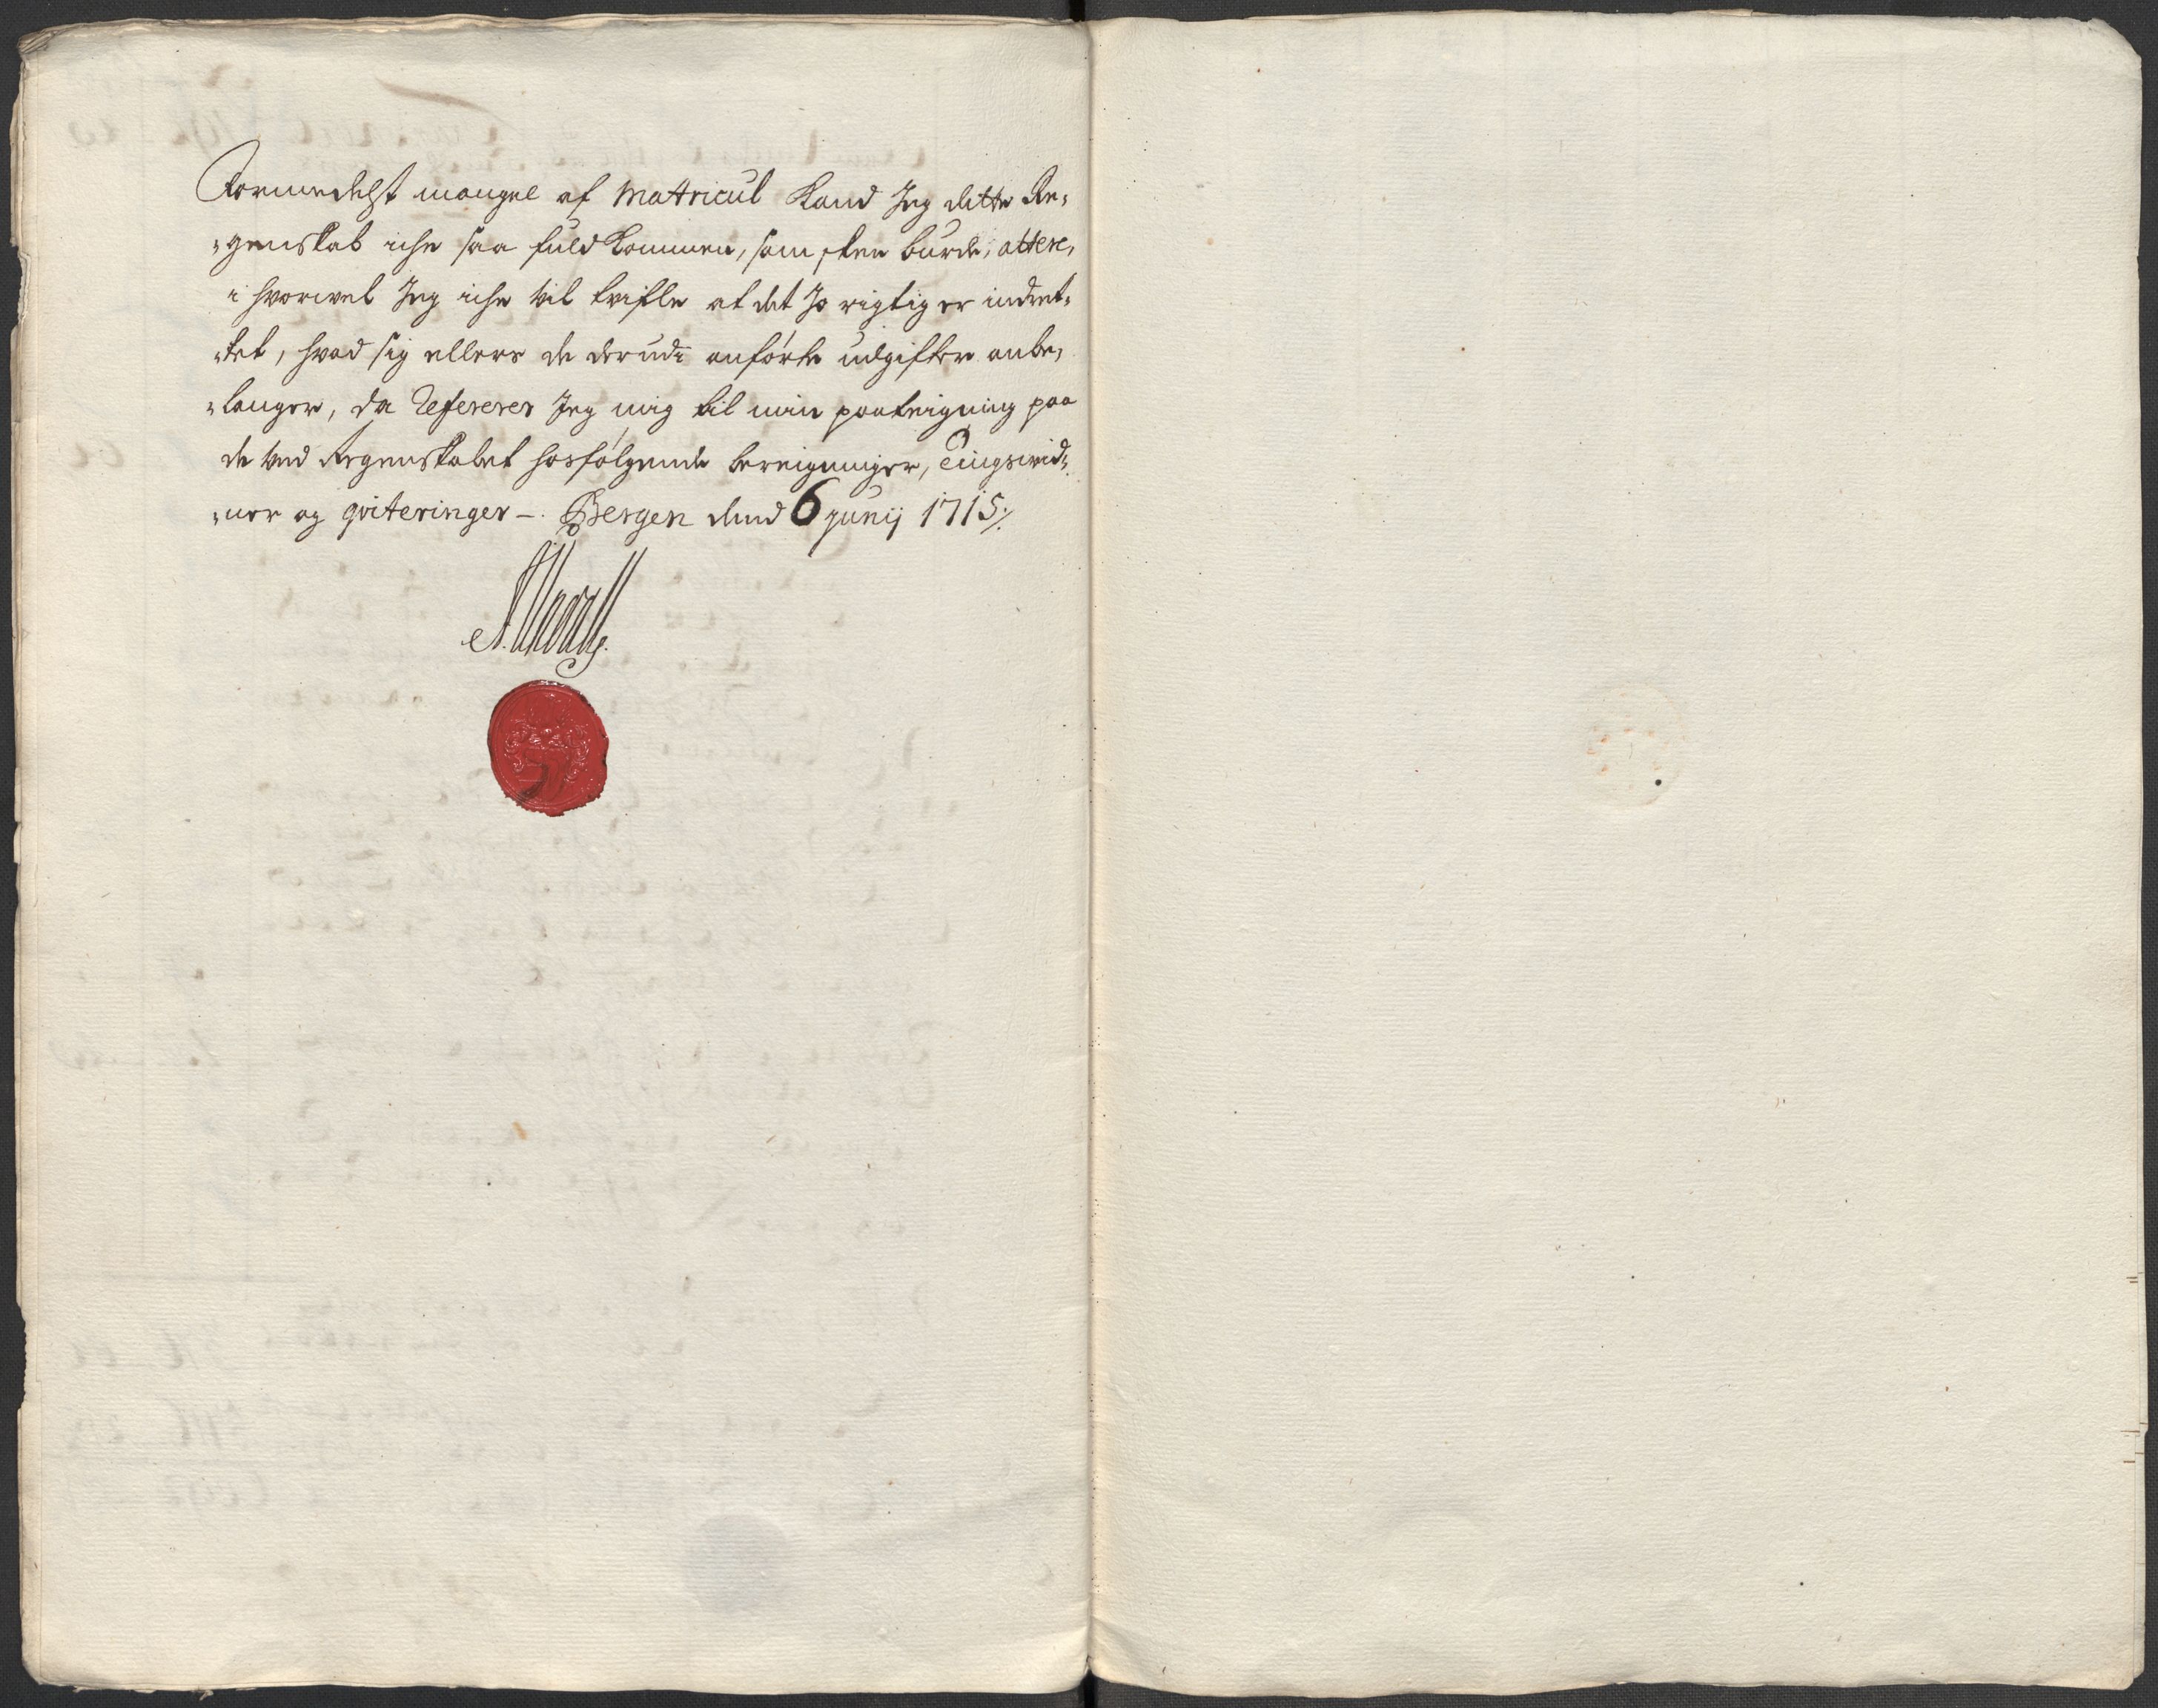 Formedelst mangel af Mattricul Kand Jeg dette Re,
,genskab iche saa fuld kommen, som skee burde, attere,
i hvorwel Jeg iche vil tvifle at det Jo rigtig er indret,
,tet, hvad sig ellers de derudi anførte udgifter anbe,
,langer, da Refererer Jeg mig til min paateigning paa
de ved Regenskabet hosfølgende bereigninger, Tingswid,
,ner og qviteringer –. Bergen dend 6 Junij 1715/